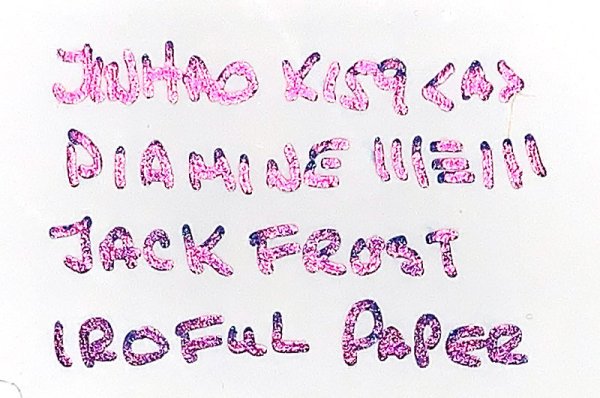 JINHAO X159 <A>
DIAMINE
JACK FROST
IROFUL PAPER